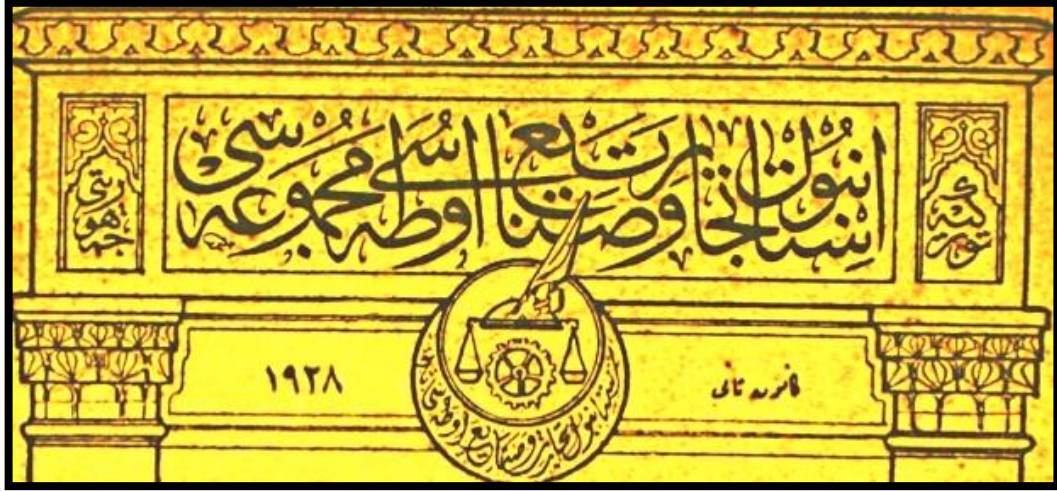 توركيه
استانبول تجارت وصنايع اوطه سى مجموعه سى
جمهوريتى
كانون ثانى
١٩٢٨
استانبول تجارت وصنايع اوطه سى